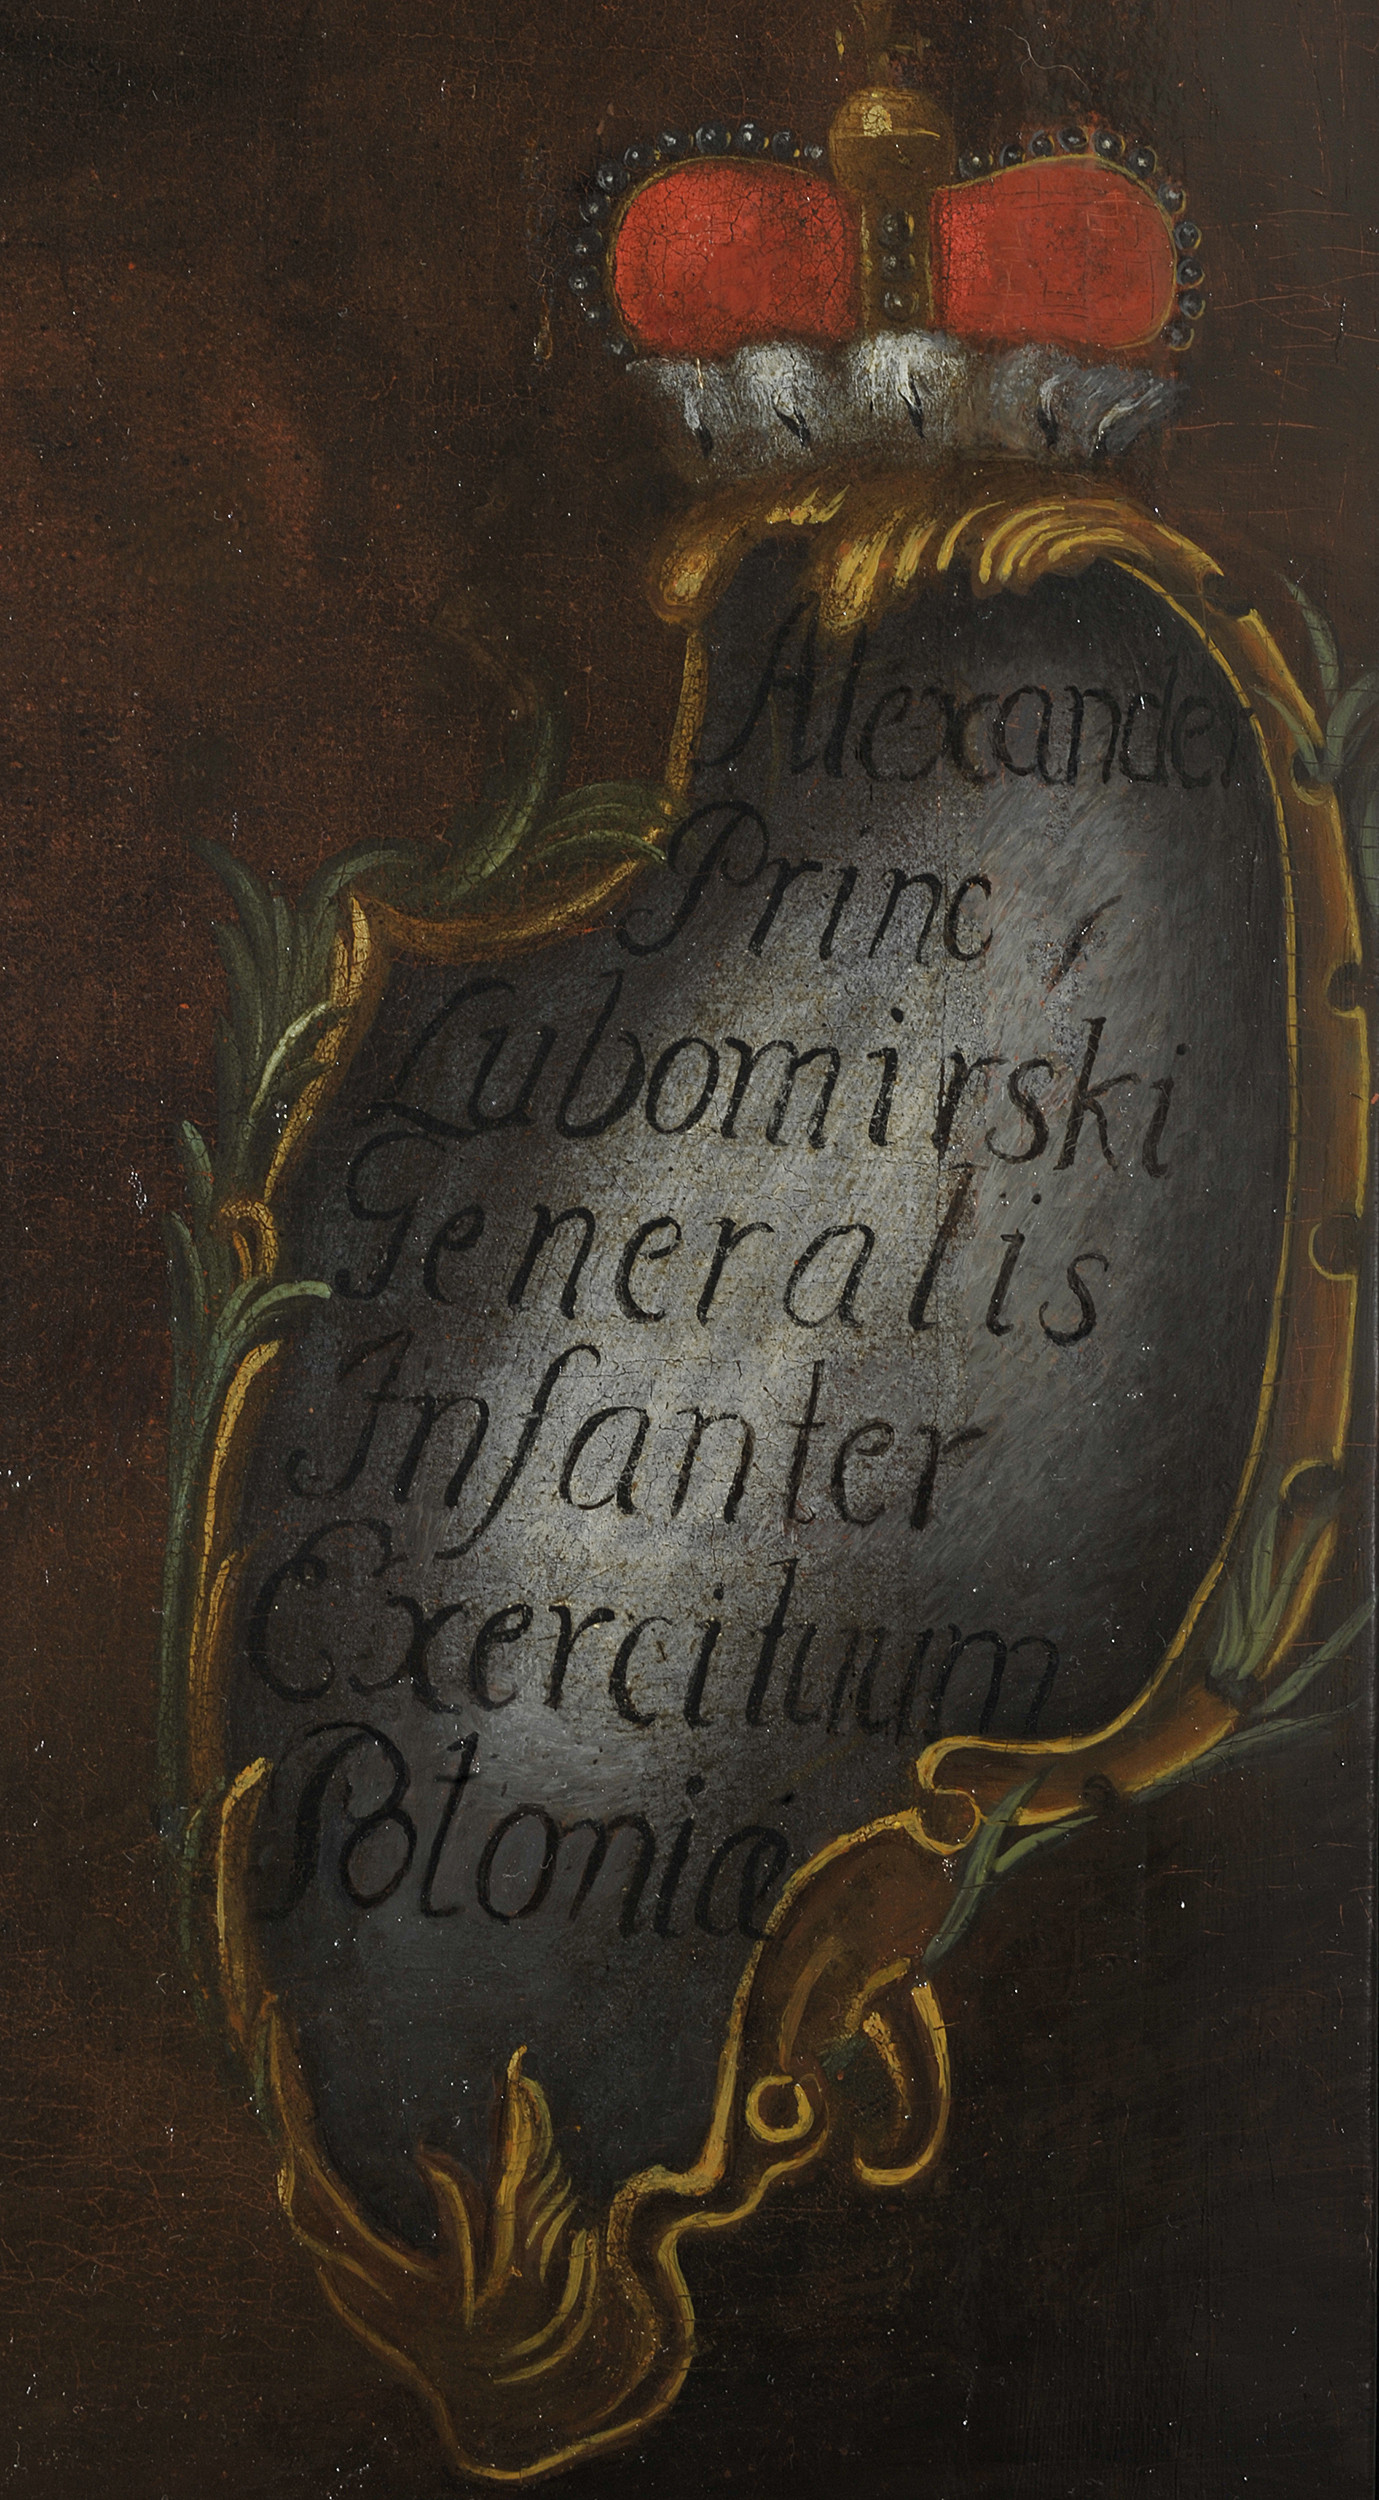 Alexander
Princ
Lubomirski
Generalis
Infanter
Exercituum
Poloniæ